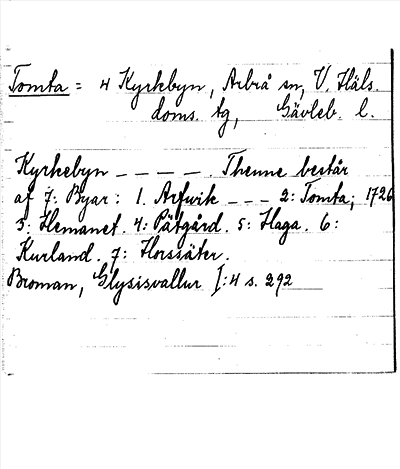 Tomta = 4 Kyrkbyn, Arbrå sn, V. Häls.
doms. tg, Gävleb. l.
Kyrkebyn – – – – . Thenne består
af 7: Byar: 1. Arfwik – – – 2: Tomta; 1726
3: Hemanet. 4: Pätgård. 5: Haga. 6:
Kurland. 7: Horssäter.
Broman, Glysisvallur I:4 s. 292